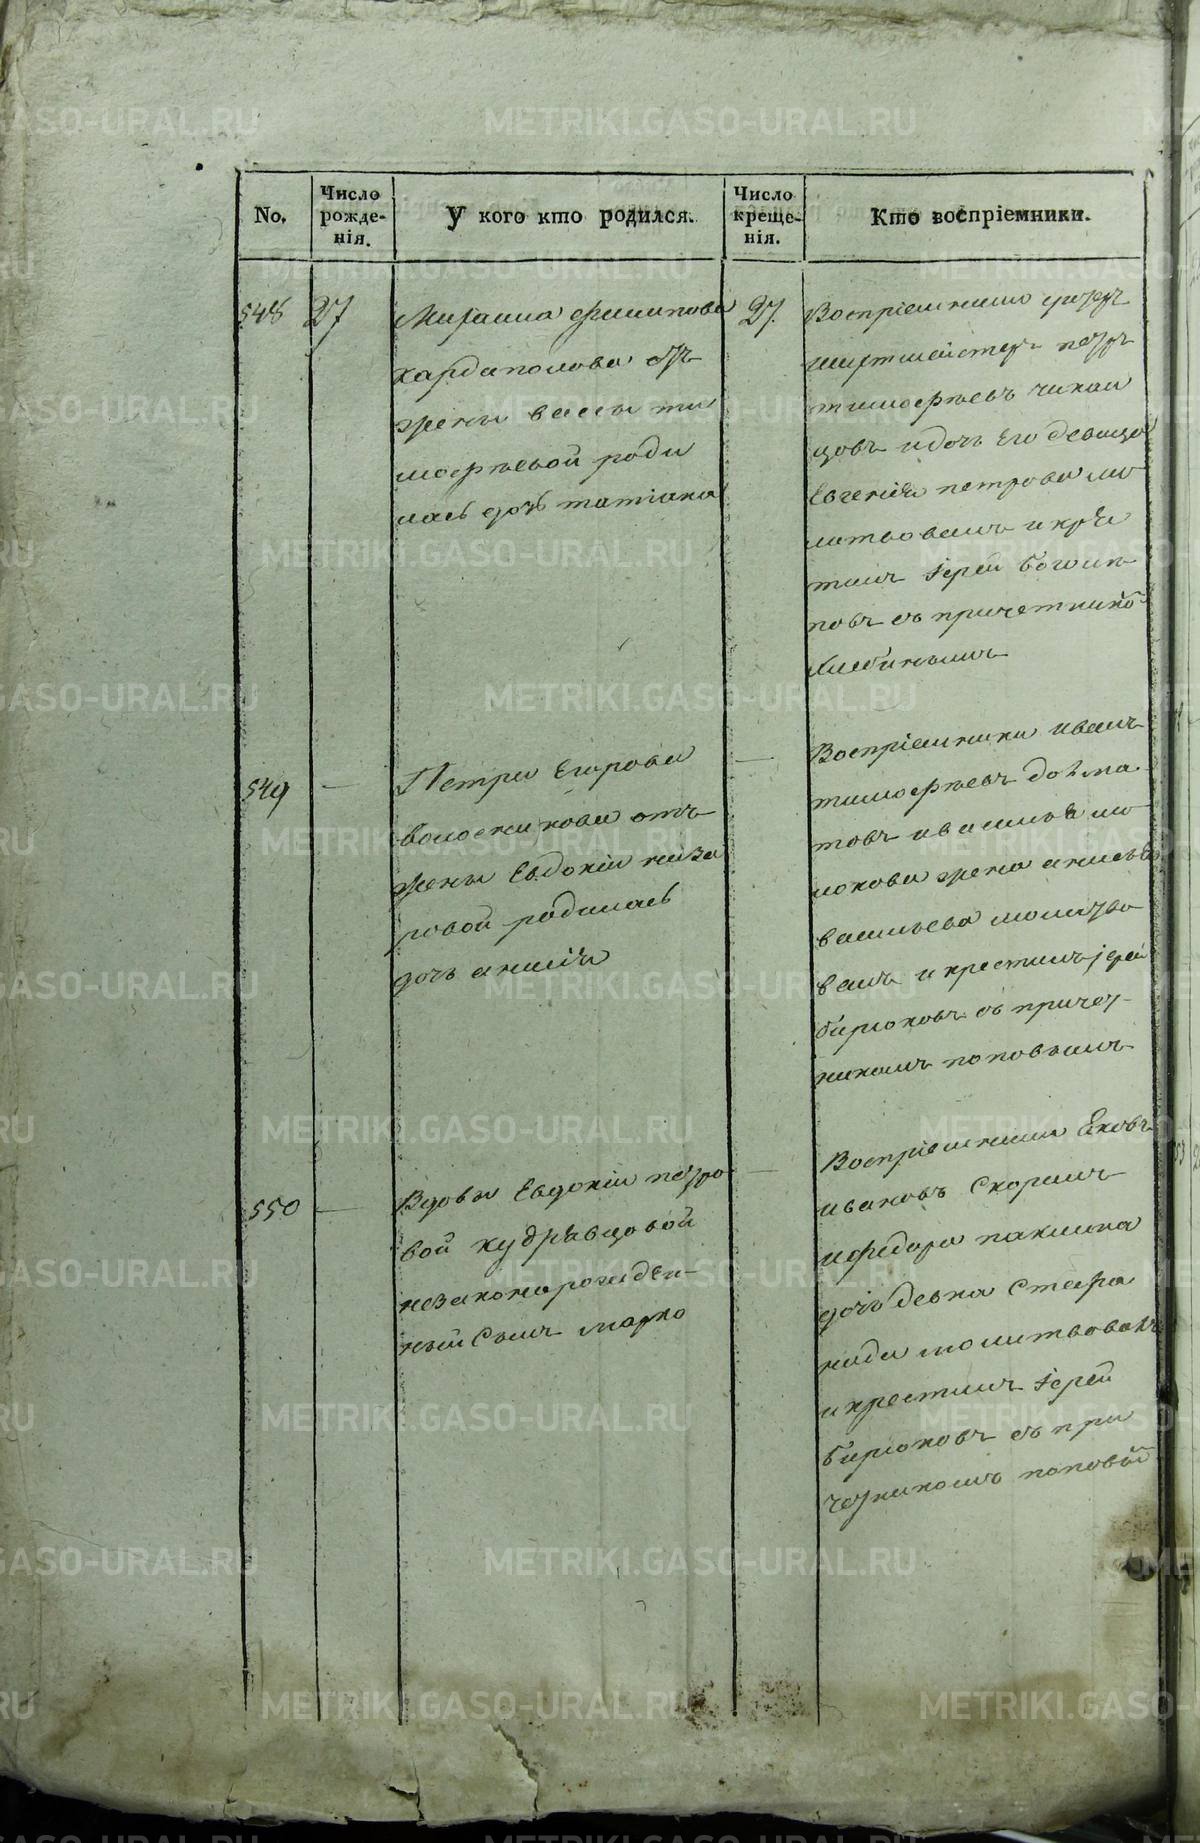 No.
Число рожде-нія.
У кого кто родился.
Число креще-нія.
Кто воспріемники.
548
27
Михаила Филипова
хардаполова отъ
жены вассы ти
мофѣевой роди
лась дочь татіана
27.
Воспріемники
шихтмейстеръ петръ
тимофѣевъ
цовъ и дочь Его девица
Евгенія петрова мо
литвовалъ и кре
тилъ Іерей
повъ съ причетнико
549
—
Петра Егорова
волосникова отъ
жены Евдокіи наза
ровой родилась
дочь анисія
—
Воспріемники иванъ
тимофѣевъ долма
товъ и василья мо
локова жена анисья
васильева молитво
валъ и крестилъ іерей
бирюковъ съ причет-
никомъ поповымъ
550
—
Вдовы Евдокіи петро
вой кудрявцовой
незаконарожден-
ный Сынъ марко
—
Воспріемники Яковъ
ивановъ Скорынъ
и федора пакина
дочь девка Стефа
нида молитвовалъ
и крестилъ Іерей
бирюковъ съ при
четникомъ поповы
METRIKI.GASO-URAL.RU